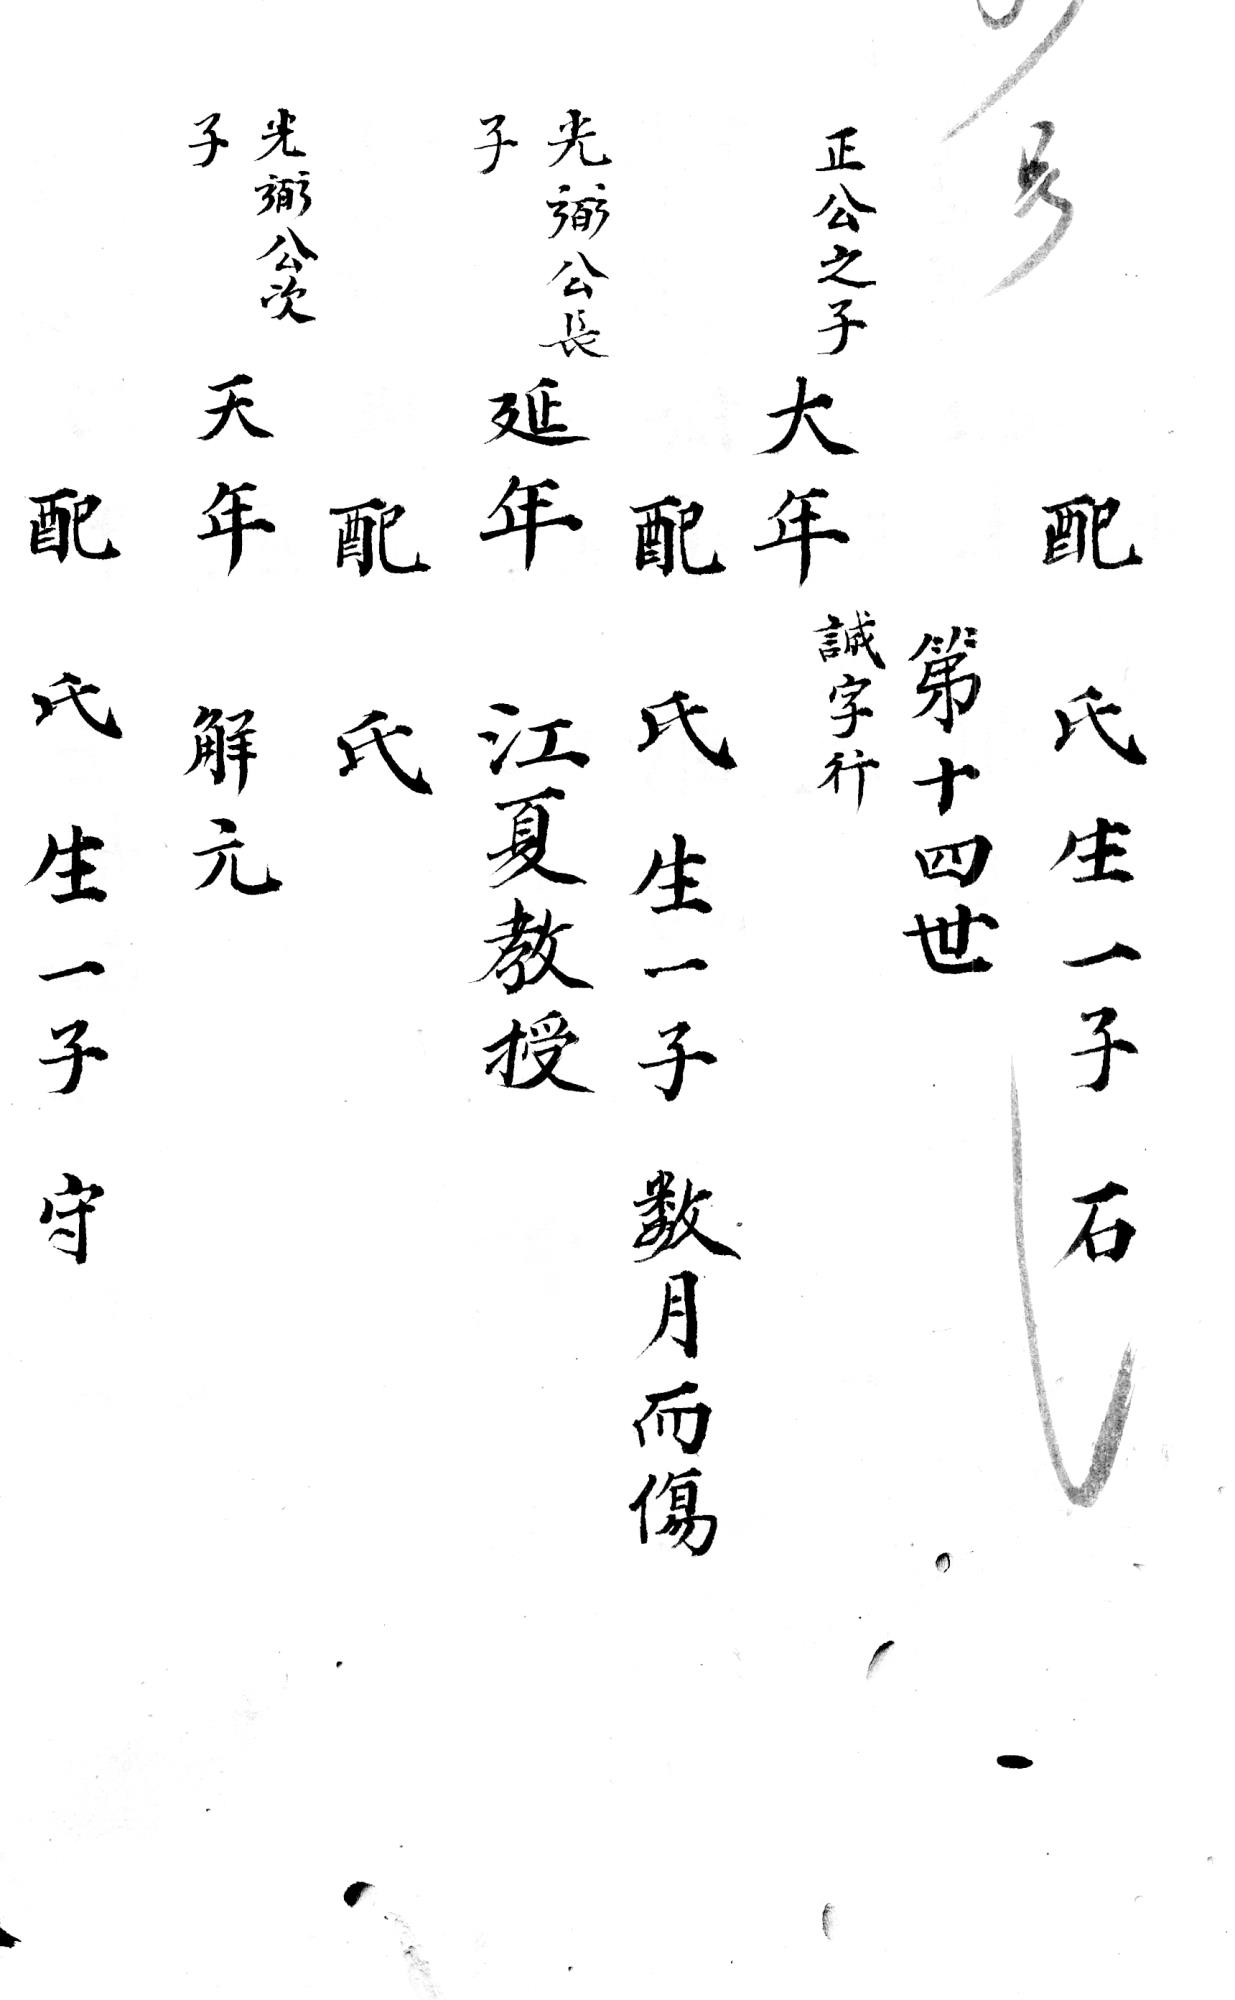 配 氏生一子 石
第十四世
誠字行
正公之子
大年
配 氏生一子 数月而傷
光弼公長
子
延年 江夏教授
配 氏
光弼公次
子
天年 解元
配 氏生一子 守